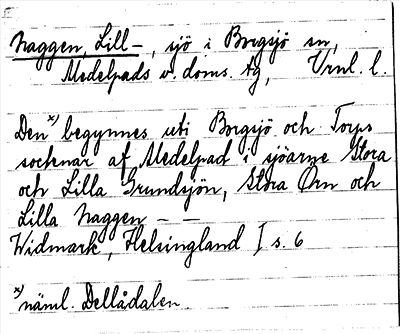 Naggen, Lill-, sjö i Borgsjö sn,
Medelpads v. doms. tg, Vrnl. l.
Den x) begynnes uti Borgsjö och Torps
socknar af Medelpad i sjöarne Stora
och Lilla Grundsjön, Stora Örn och
Lilla Naggen - -
Widmark, Helsingland I s. 6
x) näml. Dellådalen